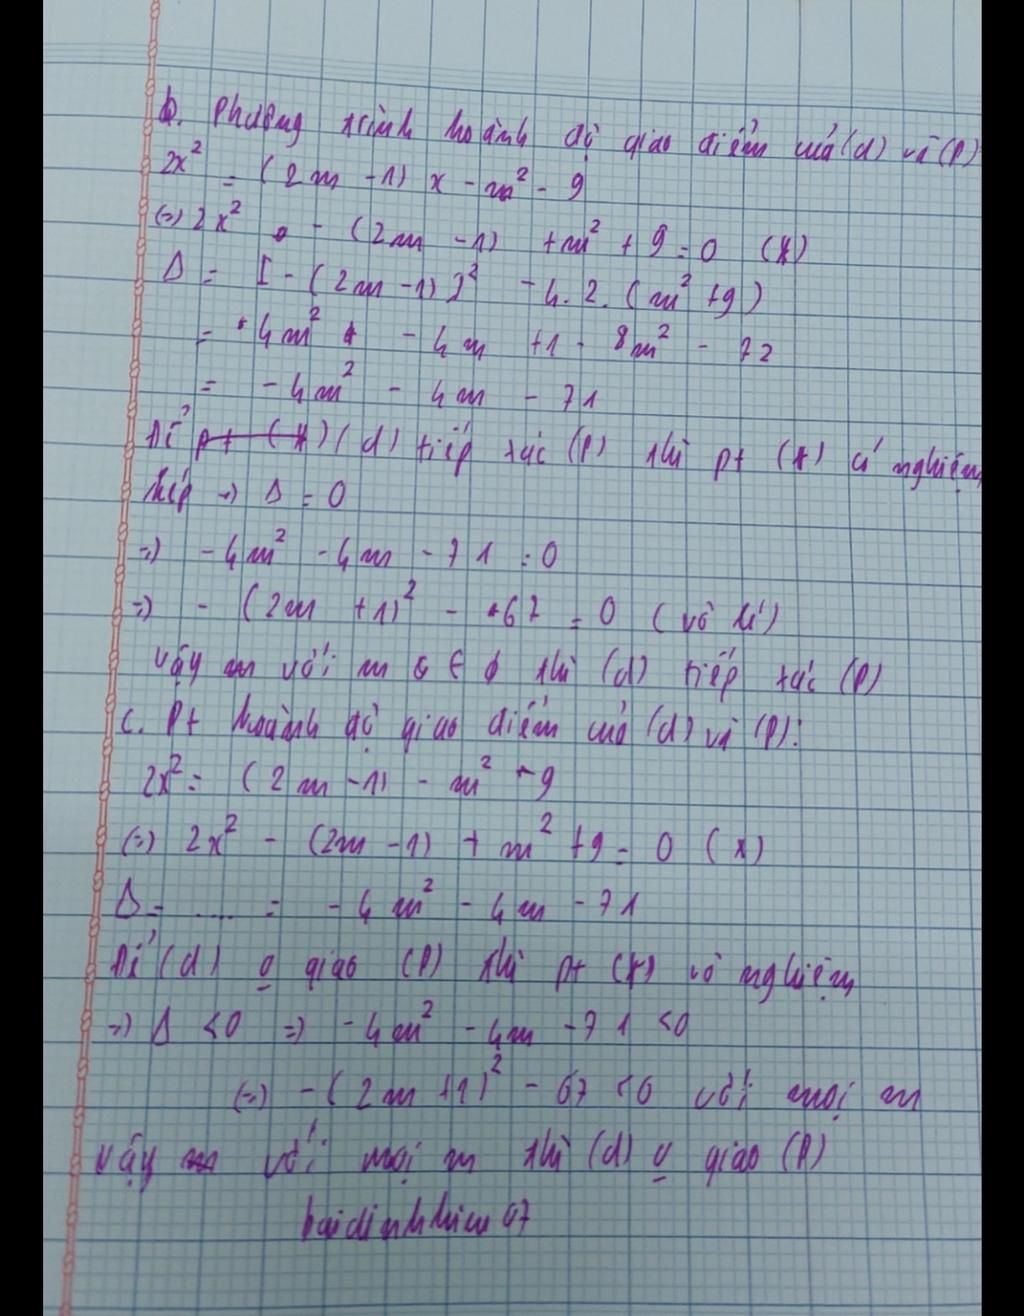 b. Phương trình hoành độ giao điểm của (d) và (P)
2x² = (2m - 1) x - m² - 9
(=) 2x² - (2m - 1) + m² + 9 = 0 (*)
Δ = [ - (2m - 1) ]² - 4. 2. (m² + 9)
= 4m² - 4m + 1 - 8m² - 72
= - 4m² - 4m - 71
Để (d) tiếp xúc (P) thì pt (*) có nghiệm
kép => Δ = 0
=> - 4m² - 4m - 71 = 0
=> - (2m + 1)² - 67 = 0 (vô lí)
Vậy với m ∈ ϕ thì (d) tiếp xúc (P)
c. Pt hoành độ giao điểm của (d) và (P):
2x² = (2m - 1) - m² - 9
(=) 2x² - (2m - 1) + m² + 9 = 0 (*)
Δ = .... = - 4m² - 4m - 71
Để (d) giao (P) thì pt (*) vô nghiệm
=> Δ < 0 => - 4m² - 4m - 71 < 0
(=) - (2m + 1)² - 67 < 0 với mọi m
Vậy với mọi m thì (d) giao (P)